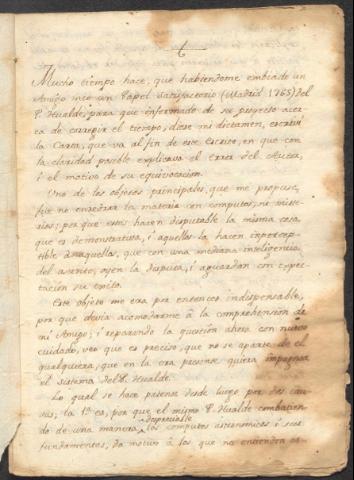 Mucho tiempo hace, que habiendome embiado un
Amigo mio un Papel satisfactorio (Madrid 1765) del
P. Hualde, para que informado de su proyecto acer-
ca de corregir el tiempo, diese mi dictamen, escriví
la Carta, que va al fin de este Escrito, en que con
la claridad posible explicava el error del Autor,
i el motivo de su equivocacion.
Uno de los objetos principales, que me propuse,
fue no enredar la materia con computos, ni miste-
rios; por que estos hacen disputable la misma cosa,
que es demonstrativa, i aquellos la hacen impercep-
tible á aquellos, que con una mediana inteligencia
del asunto, oyen la disputa, i aguardan con expec-
tacion su exito.
Este objeto me era por entonces indispensable,
por que devia acomodarme à la comprehension de
mi Amigo; i reparando la question ahora con nuevo
cuidado, veo que es preciso, que no se aparte de el
qualquiera, que en la era presente quiera impugnar
el sistema del P. Hualde.
Lo qual se hace patente desde luego por dos cau-
sas; la 1ª es, por que el mismo P. Hualde combatien-
do de una manera despreciable los computos astronomicos i sus
fundamentos, da motivo à los que no entienden es-